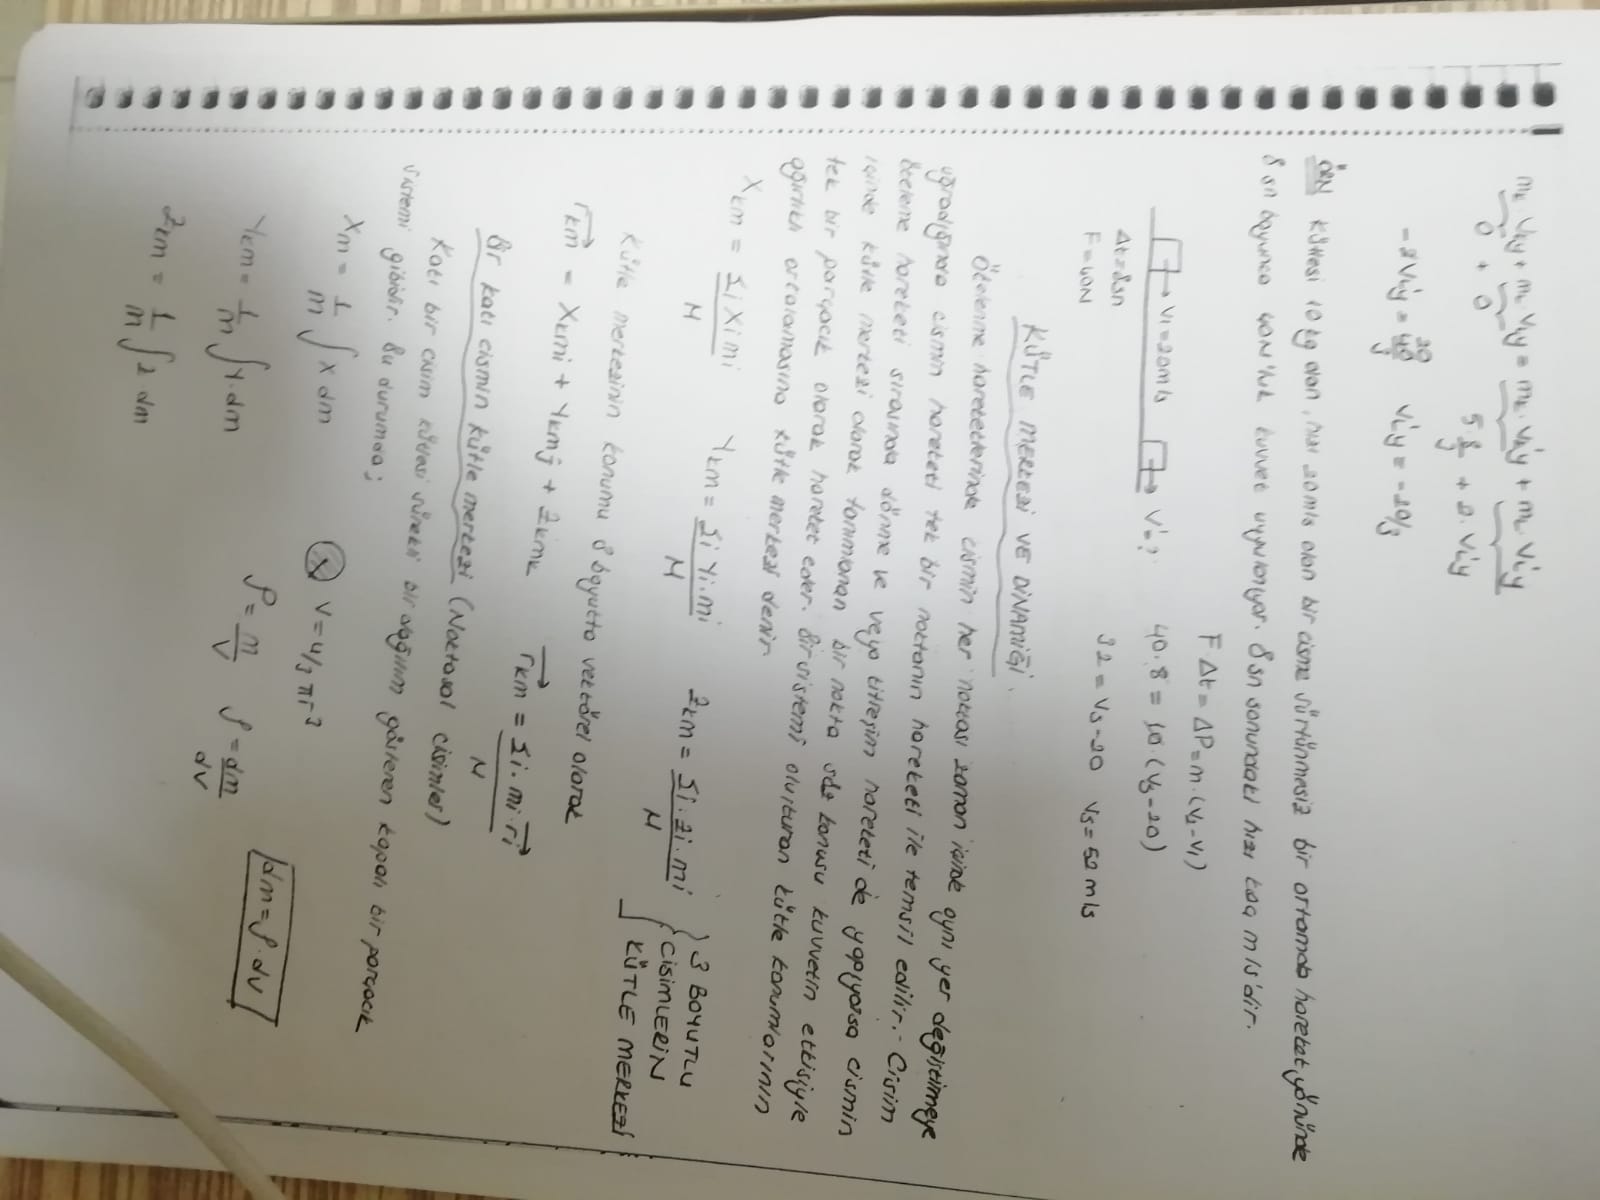 mk.Vky + mL.VLy = mk.Vk'y + mL.VL'y
0 + 0 5 8/3 + 2.VL'y
-2VL'y = 40/3 20 VL'y = -20/3
ÖRN Kütlesi 10 kg olan, hızı 20m/s olan bir cisme sürtünmesiz bir ortamda hareket yönünde
8 sn boyunca 40N'luk kuvvet uygulanıyor. 8 sn sonundaki hızı kaç m/s'dir.
F.Δt = ΔP = m.(V2-V1)
V1=20m/s V'=? 40.8 = 10.(Vs-20)
Δt=8sn
32 = Vs-20 Vs = 52 m/s
F=40N
KÜTLE MERKEZİ VE DİNAMİĞİ.
Ötelenme hareketlerinde cismin her noktası zaman içinde aynı yer değiştirmeye
uğradığında cismin hareketi tek bir noktanın hareketi ile temsil edilir.- Cisim
öteleme hareketi sırasında dönme ve veya titreşim hareketi de yapıyorsa cismin
içinde kütle merkezi olarak tanımlanan bir nokta söz konusu kuvvetin etkisiyle
tek bir parçacık olarak hareket eder. Bir sistemi oluşturan kütle konumlarının
ağırlıklı ortalamasına kütle merkezi denir.
Xkm = Σi Xi mi / M Ykm = Σi Yi.mi / M Zkm = Σi.zi.mi / M } 3 BOYUTLU
CİSİMLERİN
KÜTLE MERKEZİ
Kütle merkezinin konumu 3 boyutta vektörel olarak
rkm = Xkmi + Ykmj + Zkmk rkm = Σi.mi.ri / M
Bir katı cismin kütle merkezi (Noktasal cisimler)
Katı bir cisim kütlesi sürekli bir dağılım gösteren kapalı bir parçacık
sistemi gibidir. Bu durumda;
Xm = 1/m ∫x dm V=4/3 πr³
Ykm = 1/m ∫Y.dm ρ = m/V ρ = dm/dV dm=ρ.dv
Zkm = 1/m ∫z dm